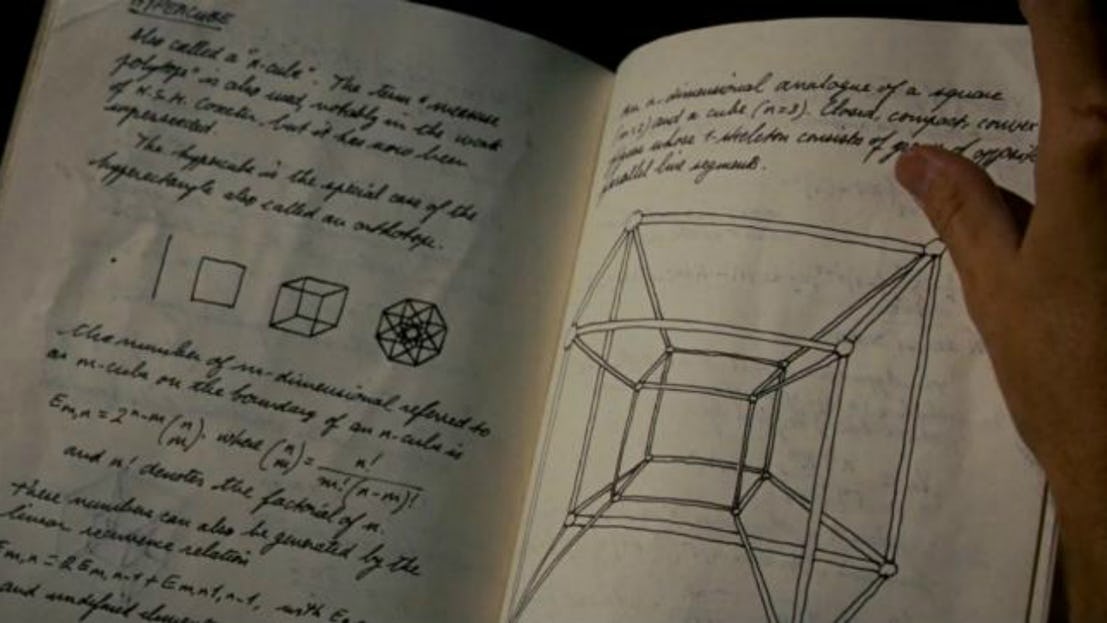 HYPERCUBE
Also called a "n-cube". The term "measure
polytope" is also used, notably in the work
of H.S.M. Coxeter, but it has now been
superseded.
The hypercube is the special case of the
hyperrectangle also called an orthotope.
The number of m-dimensional referred to
as m-cube on the boundary of an n-cube is
Em,n = 2^n-m (n m). where (n m) = n! / m!(n-m)!
and n! denotes the factorial of n.
These numbers can also be generated by the
linear recurrence relation
Em,n = 2Em,n-1 + Em-1,n-1, with E
and undefined elements
an n-dimensional analogue of a square
(n=2) and a cube (n=3). Closed, compact, convex
figure whose 1-skeleton consists of of opposite
parallel line segments.